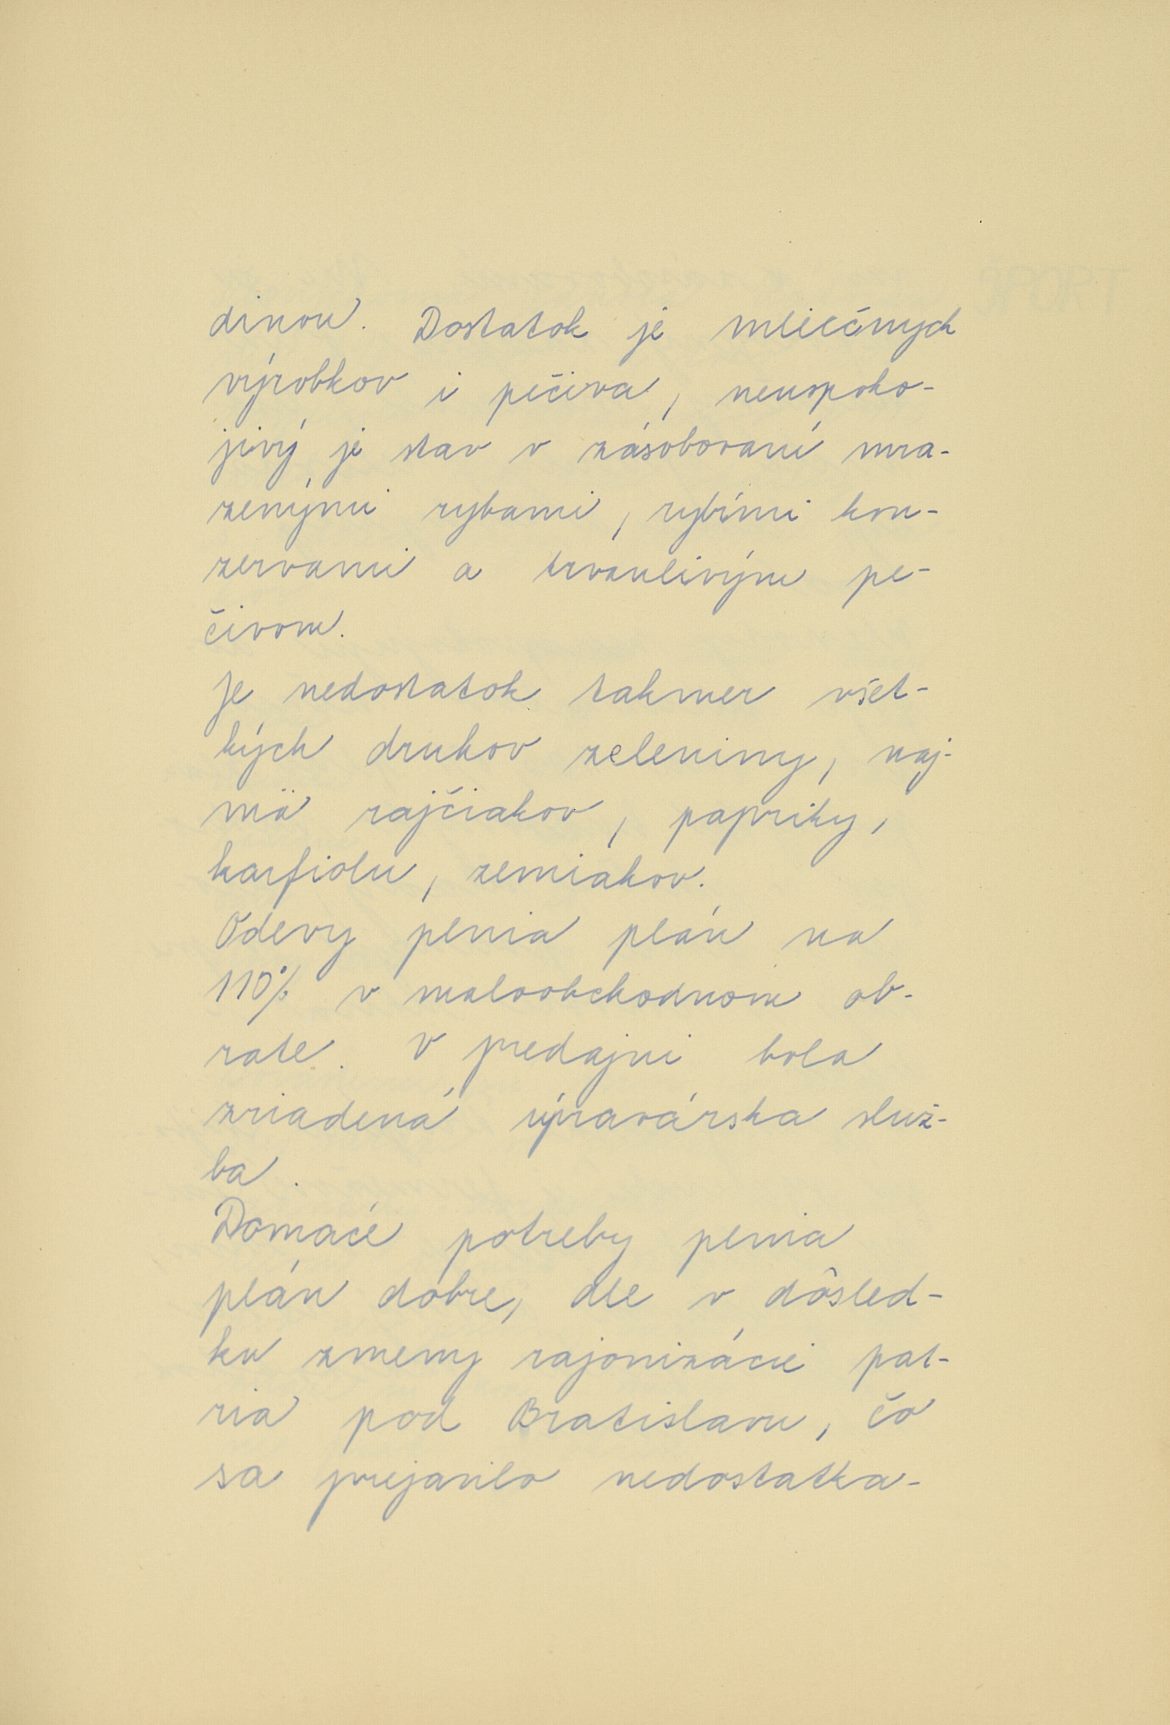 dinou. Dostatok je mliečnych
výrobkov i pečiva, neuspoko-
jivý je stav v zásobovaní mra-
zenými rybami, rybími kon-
zervami a trvanlivým pe-
čivom.
Je nedostatok takmer všet-
kých druhov zeleniny, naj-
mä rajčiakov, papriky,
karfiolu, zemiakov.
Odevy plnia plán na
110% v maloobchodnom ob-
rate. V predajni bola
zriadená úpravárska služ-
ba.
Domáce potreby plnia
plán dobre, ale v dôsled-
ku zmeny rajonizácie pat-
ria pod Bratislavu, čo
sa prejavilo nedostatka-